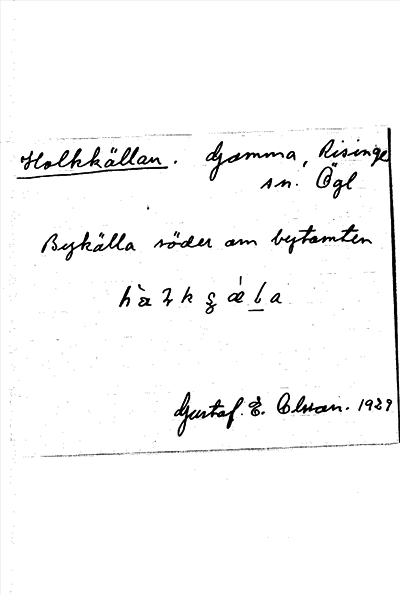 Holkkällan. Gamma, Risinge
sn. Ögl
Bykälla söder om bytomten
Gustaf. E. Olsson. 1929